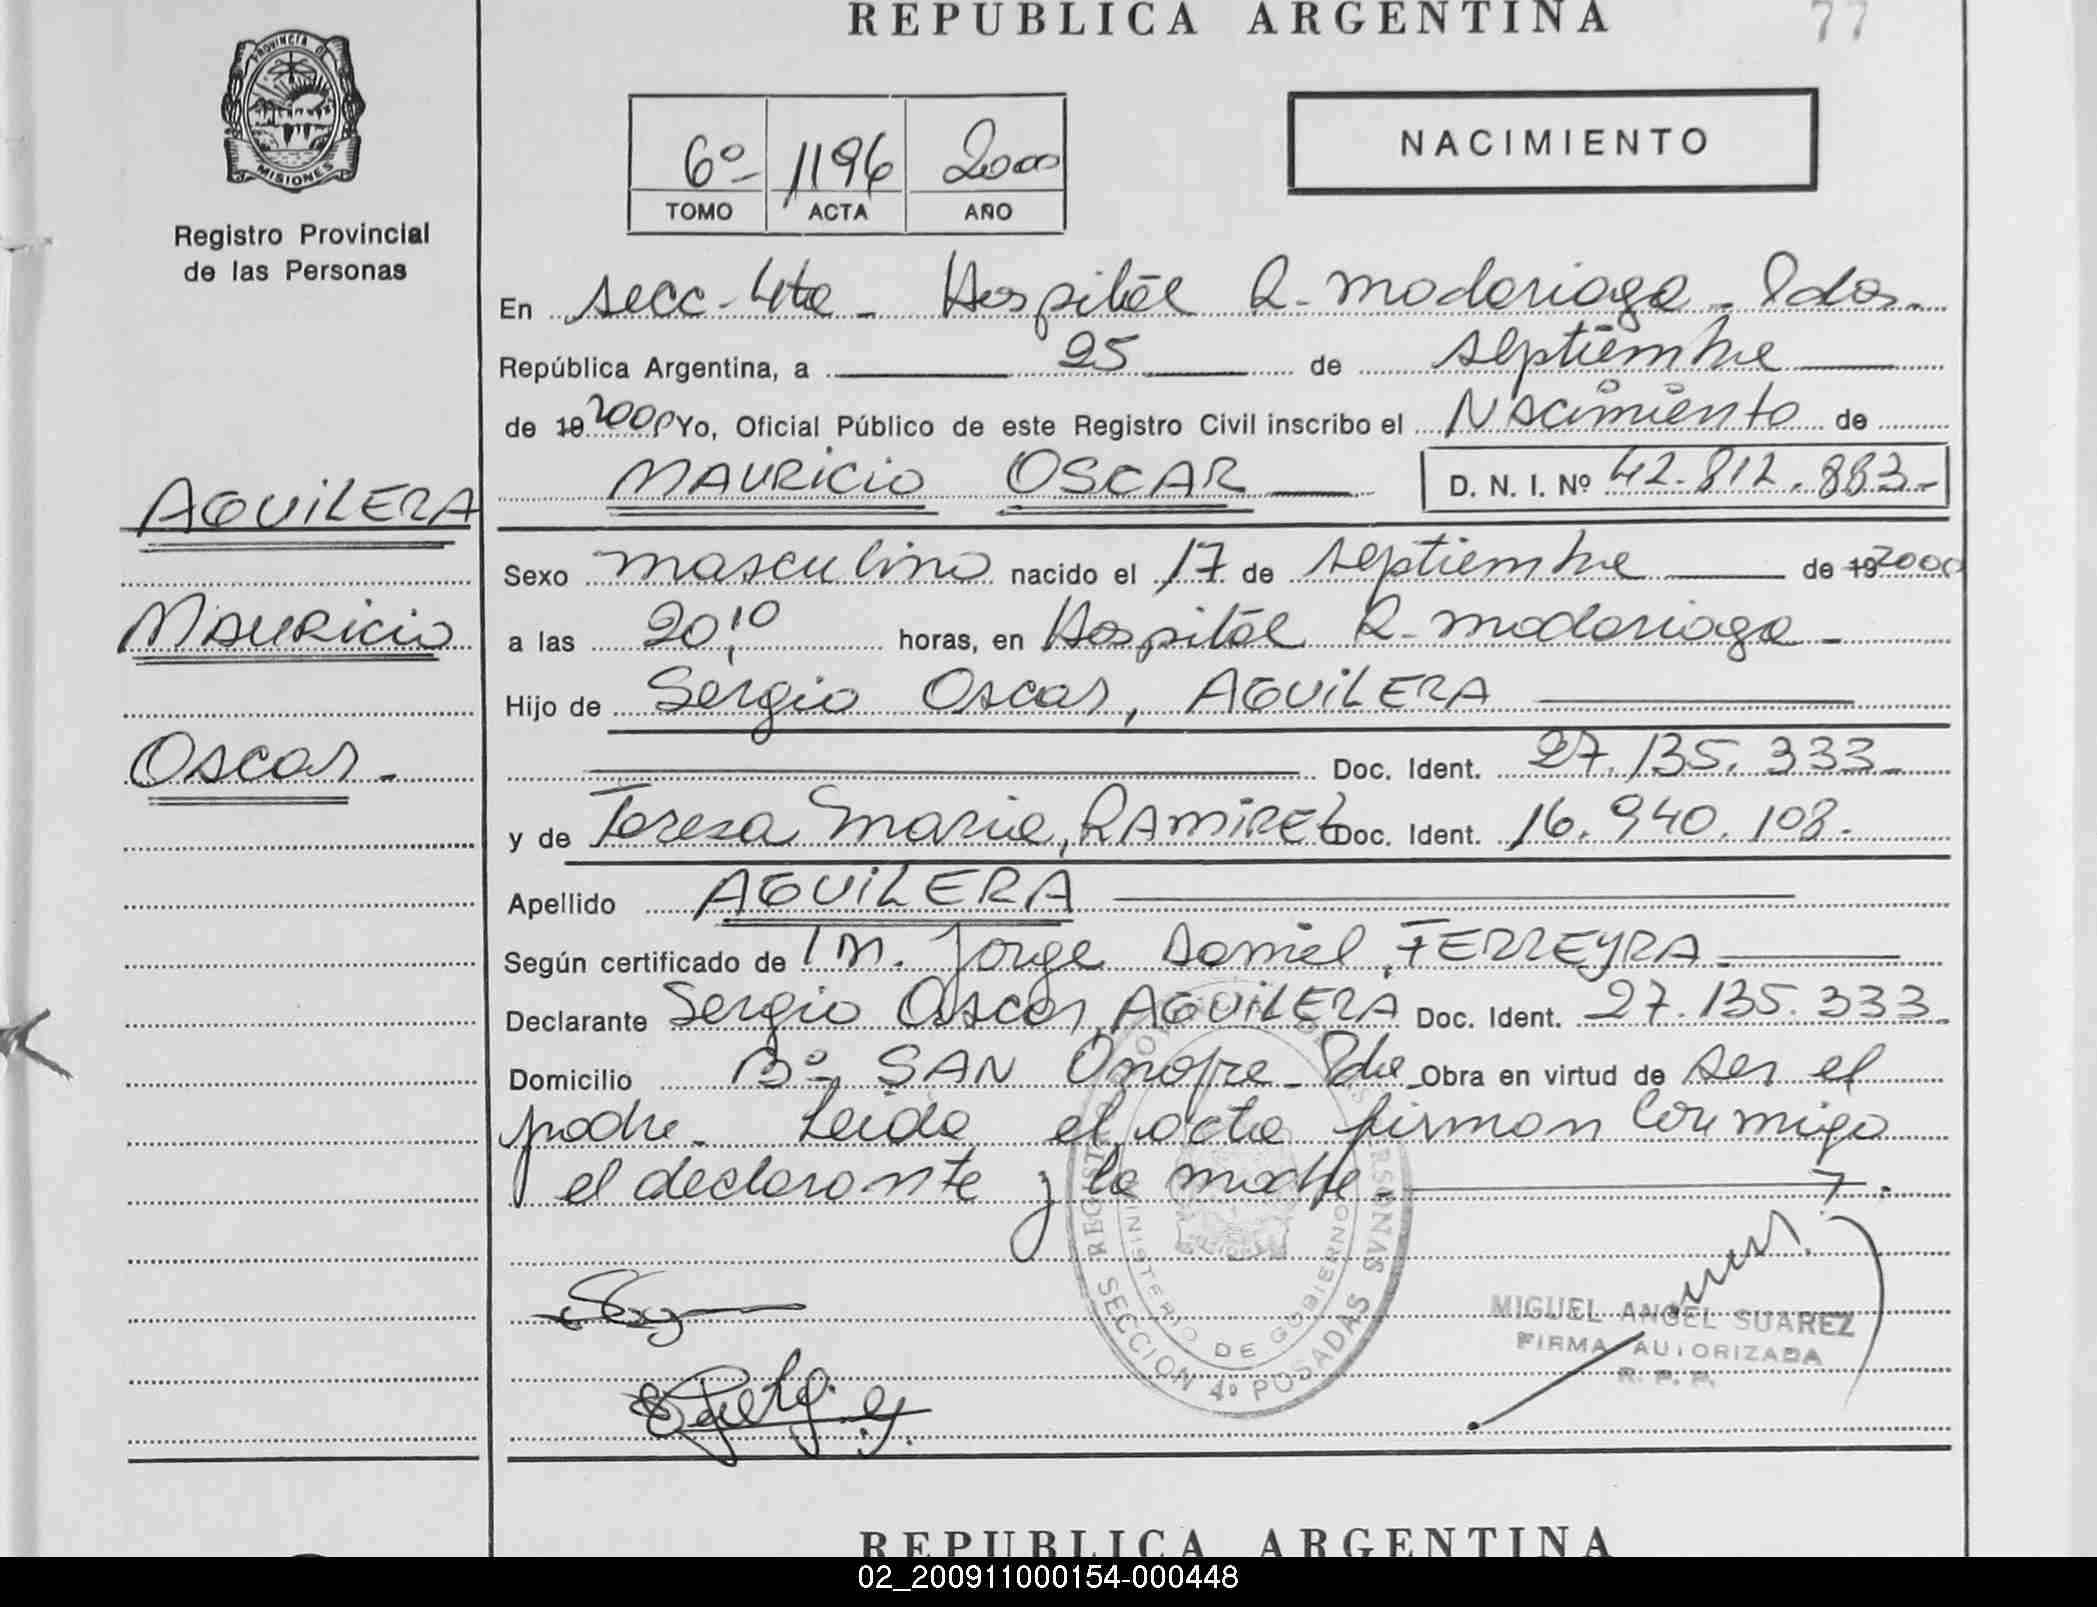 REPUBLICA ARGENTINA
77
PROVINCIA DE
MISIONES
Registro Provincial
de las Personas
6º 1196 2000
TOMO ACTA AÑO
NACIMIENTO
En secc - 4ta - Hospital R. Madariaga - Pdas.
República Argentina, a 25 de septiembre
de 19 2000 Yo, Oficial Público de este Registro Civil inscribo el Nacimiento de
MAURICIO OSCAR D. N. I. Nº 42.812.883-
AGUILERA
Mauricio
Oscar -
Sexo masculino nacido el 17 de septiembre de 19 2000
a las 20,10 horas, en Hospital R. Madariaga -
Hijo de Sergio Oscar, AGUILERA
Doc. Ident. 27.135.333-
y de Teresa Maria, RAMIREZ Doc. Ident. 16.940.108.
Apellido AGUILERA
Según certificado de Jorge Daniel, FERREYRA
Declarante Sergio Oscar, AGUILERA Doc. Ident. 27.135.333.
Domicilio Bº SAN Onofre - Pdas Obra en virtud de ser el
padre. Leida el acta firman conmigo
el declarante y la madre.
MINISTERIO DE GOBIERNO
SECCION 4º POSADAS
MIGUEL ANGEL SUAREZ
FIRMA AUTORIZADA
R. P. P.
REPUBLICA ARGENTINA
02_200911000154-000448